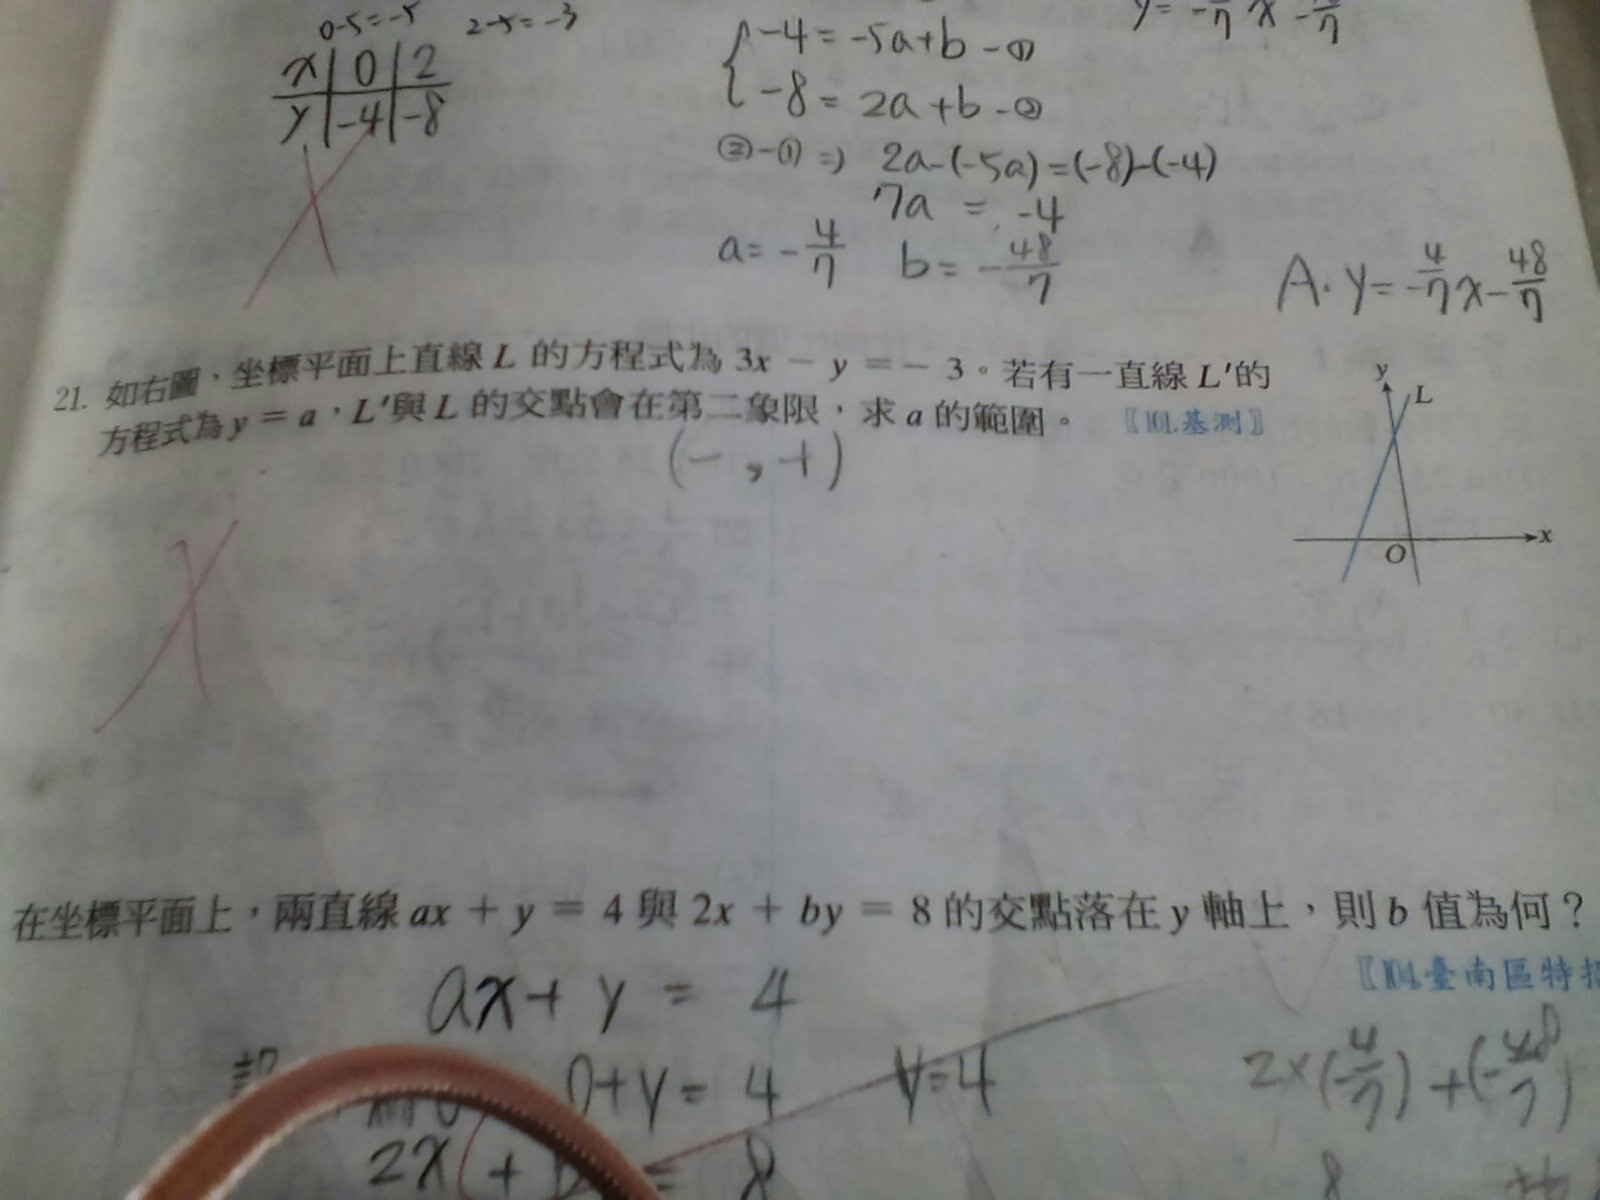 0-5=-5 2-5=-3
x 0 2
y -4 -8
-4=-5a+b-①
-8=2a+b-②
②-①⇒ 2a-(-5a)=(-8)-(-4)
7a = -4
a=-4/7 b=-48/7
A. y=-4/7x-48/7
21. 如右圖，坐標平面上直線 L 的方程式為 3x － y ＝－ 3。若有一直線 L′的
方程式為 y ＝ a，L′與 L 的交點會在第二象限，求 a 的範圍。 〖101.基測〗
(-,+)
y
L
x
O
在坐標平面上，兩直線 ax ＋ y ＝ 4 與 2x ＋ by ＝ 8 的交點落在 y 軸上，則 b 值為何？
〖104.臺南區特招
ax+y=4
0+y=4 y=4
2x + = 8
2×(-4/7)+(-48/7)
8